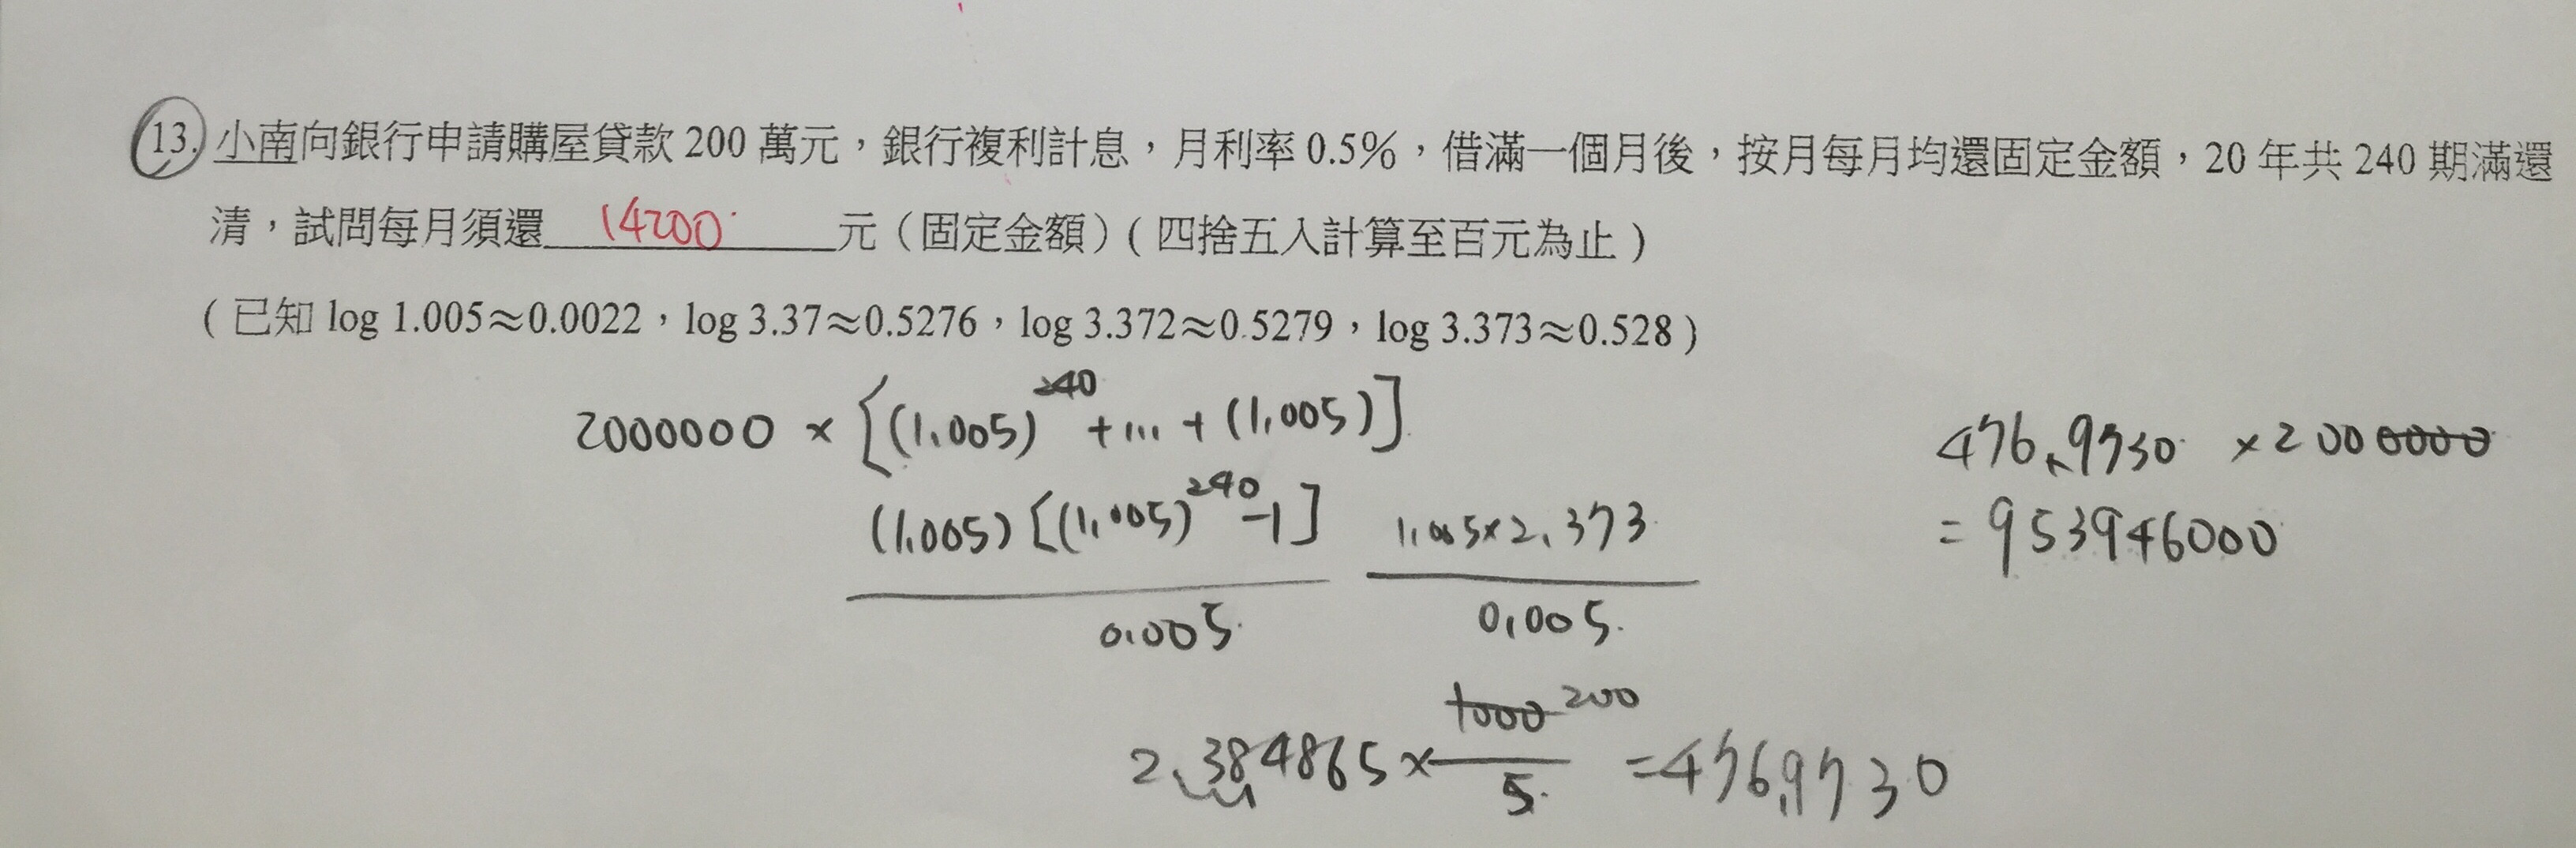 13. 小南向銀行申請購屋貸款 200 萬元，銀行複利計息，月利率 0.5%，借滿一個月後，按月每月均還固定金額，20 年共 240 期滿還
清，試問每月須還 14200 元（固定金額）( 四捨五入計算至百元為止 )
( 已知 log 1.005≈0.0022，log 3.37≈0.5276，log 3.372≈0.5279，log 3.373≈0.528 )
2000000 × [(1.005)^240 + ... + (1.005)]
(1.005) [(1.005)^240 -1]
0.005
1.005×2.373
0.005
2.384865 × 1000 200
5
=476.9730
476.9730 ×2000000
= 953946000